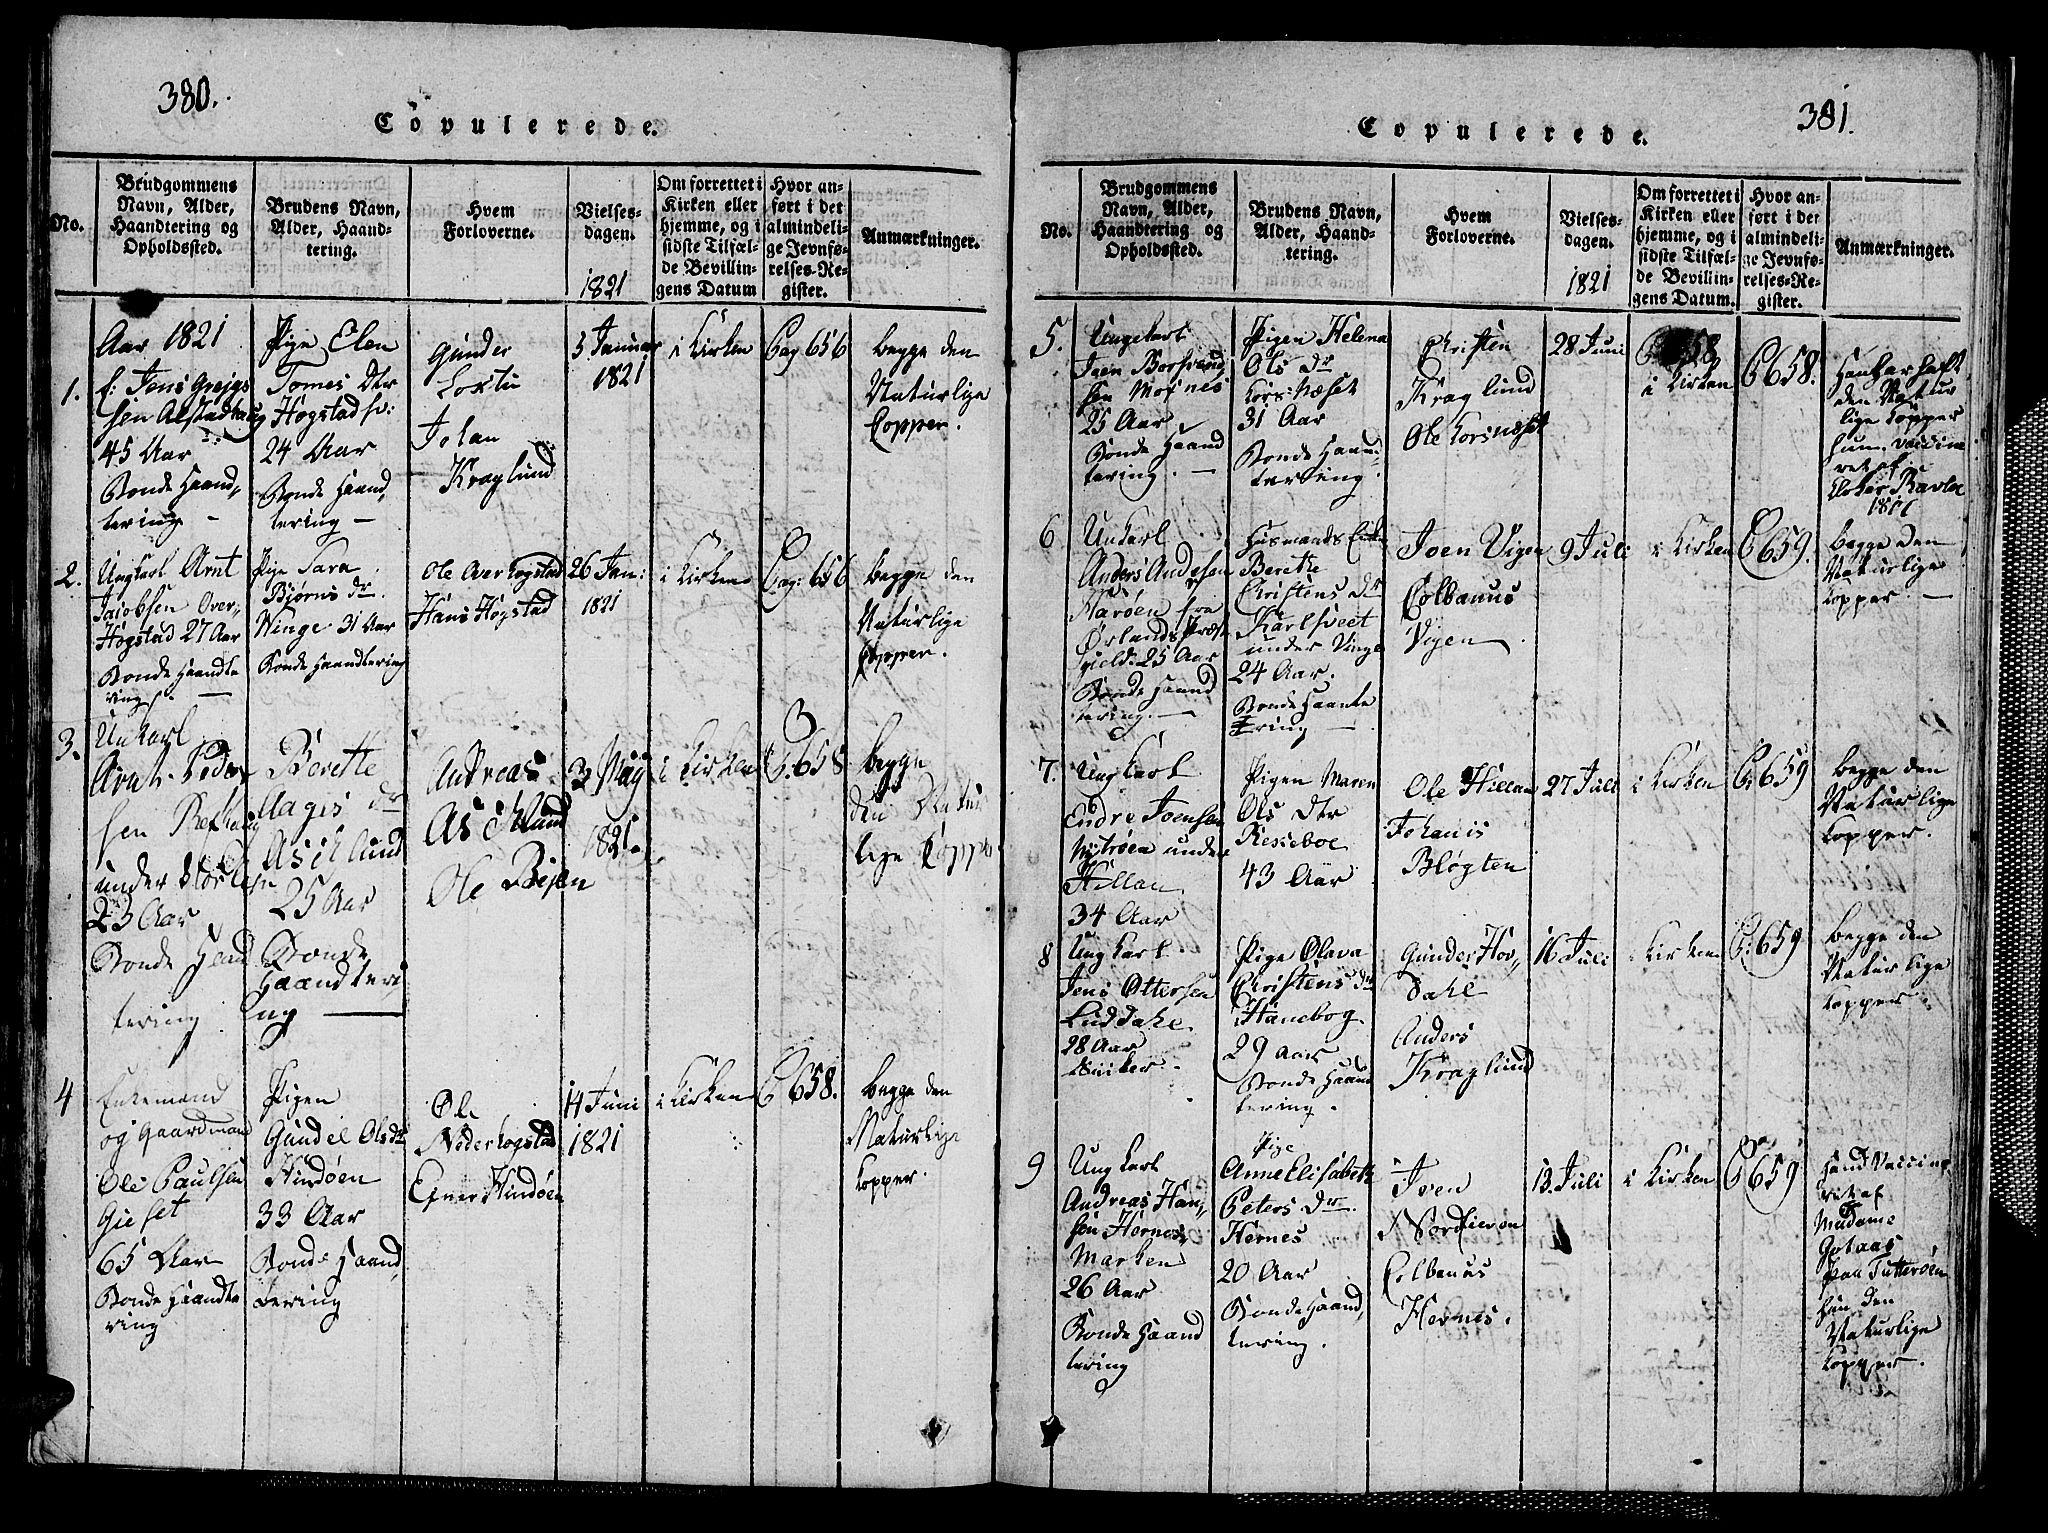 380.
Copulerede.
No.
Brudgommens
Navn, Alder,
Haandtering og
Opholdssted.
Brudens Navn,
Alder, Haand-
tering.
Hvem
Forloverne.
Vielses-
dagen.
1821
Om forrettet i
Kirken eller
hjemme, og i
sidste Tilfæl-
de Bevillin-
gens Datum
Hvor an-
ført i det
almindeli-
ge Jevnfø-
relses-Re-
gister.
Anmærkninger.
Aar 1821
1.
Jens Grejgs
sen Alstadhaug
45 Aar
Bonde Haand,
tering –
Pige Elen
Tomes Dtr
Høgstad
24 Aar
Bonde Haand,
tering –
Gunder
Loxtu
Johan
Kraglund
5 Januar
1821
i Kirken
Pag 656
begge den
Naturlige
Copper.
2.
Ungkarl Arnt
Jacobsen Over-
Høgstad 27 Aar
Bonde Haandte
ring. –
Pige Sara
Bjørns dr
Winge 31 Aar
Bonde Haandtering
Ole Overhogstad
Hans Høgstad
26 Jan:
1821
i Kirken
Pag: 656
begge den
Naturlige
Copper.
3.
Unkarl
Arnt Peder
sen Refhaug
under
23 Aar
Bonde Haand
tering
Berette
Aagis dr
Aschlund
25 Aar
Bonde
Haandteri
ng –
Andreas
Aschlund
Ole Bejen
3 Maj
1821.
i Kirken
3
P. 658
begge
den Natur
lige Copper
4
Enkemand
og Gaardmand
Ole Paulsen
Gieset
65 Aar
Bonde Haandte
ring
Pigen
Gundel Olsdr
Hindøen
33 Aar
Bonde Haand,
tering
Ole
Nederhogstad
Efner Hindøen
14 Juni
1821
i Kirken
P 658.
begge den
Naturlige
Copper.
381.
Copulerede.
No.
Brudgommens
Navn, Alder,
Haandtering og
Opholdssted.
Brudens Navn,
Alder, Haand-
tering.
Hvem
Forloverne.
Vielses-
dagen.
1821
Om forrettet i
Kirken eller
hjemme, og i
sidste Tilfæl-
de Bevillin-
gens Datum.
Hvor an-
ført i det
almindeli-
ge Jevnfø-
relses-Re-
gister.
Anmærkninger.
5.
Ungekarl
Joen
sen Mosnes
25 Aar
Bonde Haand
tering. –
Pigen Helena
Ols Dr
Korsnæset
31 Aar
Bonde Haand-
tering.
Christen
Kraglund
Ole Korsnæset
28 Juni
i Kirken
P 658.
Han har haft
den Natur
lige Copper
hun vaccine
ret af
Kloker
6
Unkarl
Anders Andersen
Narøen fra
Ørlands Præste
gield: 25 Aar
Bonde Haand
tering. –
Husmands Enke
Beretke
Christens Dr
Karlsveet
under Vinge
24 Aar.
Bonde Haante
ring –
Joen Vigen
Colbanus
Vigen
9 Juli
i Kirken
P 659.
begge den
Naturlige
Copper –
7.
Ungkarl
Endre Joensen
Nytrøen under
Hillan
34 Aar
Pigen Maren
Ols Dtr
Resieboe
43 Aar
Ole Hillan
Johanis
Bløgten
27 Juli
i Kirken
P. 659
begge den
Naturlige
Copper.
8
Ungkarl.
Jens Ottersen
Luddahl
28 Aar
Snikker.
Pige Olava
Christens dr
Hanebog
29 Aar
Bonde Haand
tering.
Gunder Hov,
dahl
Anders
Kraglund
16 Juli
i Kirken
P. 659
begge den
Naturlige
Copper.
9
Ungkarl
Andreas Han,
sen Hernes,
Marken
26 Aar
Bonde Haand
tering
Pige
Anne Elisabeth
Peters Dr.
Hernes
20 Aar
Bonde Haand,
tering.
Iven
Nordieven
Colbenus
Hernes.
13. Juli
i Kirken
P 659
Hand Vaccine
ret af
Madame
Gotaas
paa Tutterøen
hun den
Naturlige
Copper.